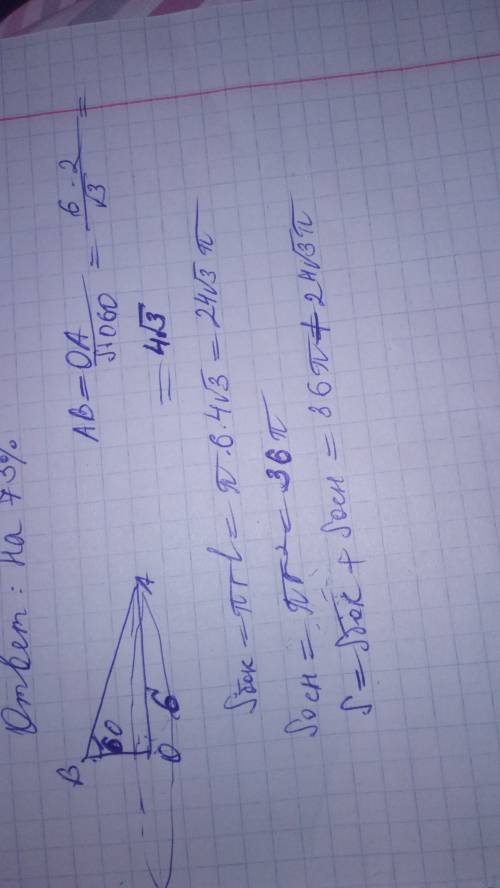 Ответ: на 73%
AB = OA / sin 60 = 6 · 2 / √3 =
= 4√3
B
60
O
6
A
Sбок = πrl = π · 6 · 4√3 = 24√3 π
Sосн = πr² = 36π
S = Sбок + Sосн = 36π + 24√3π